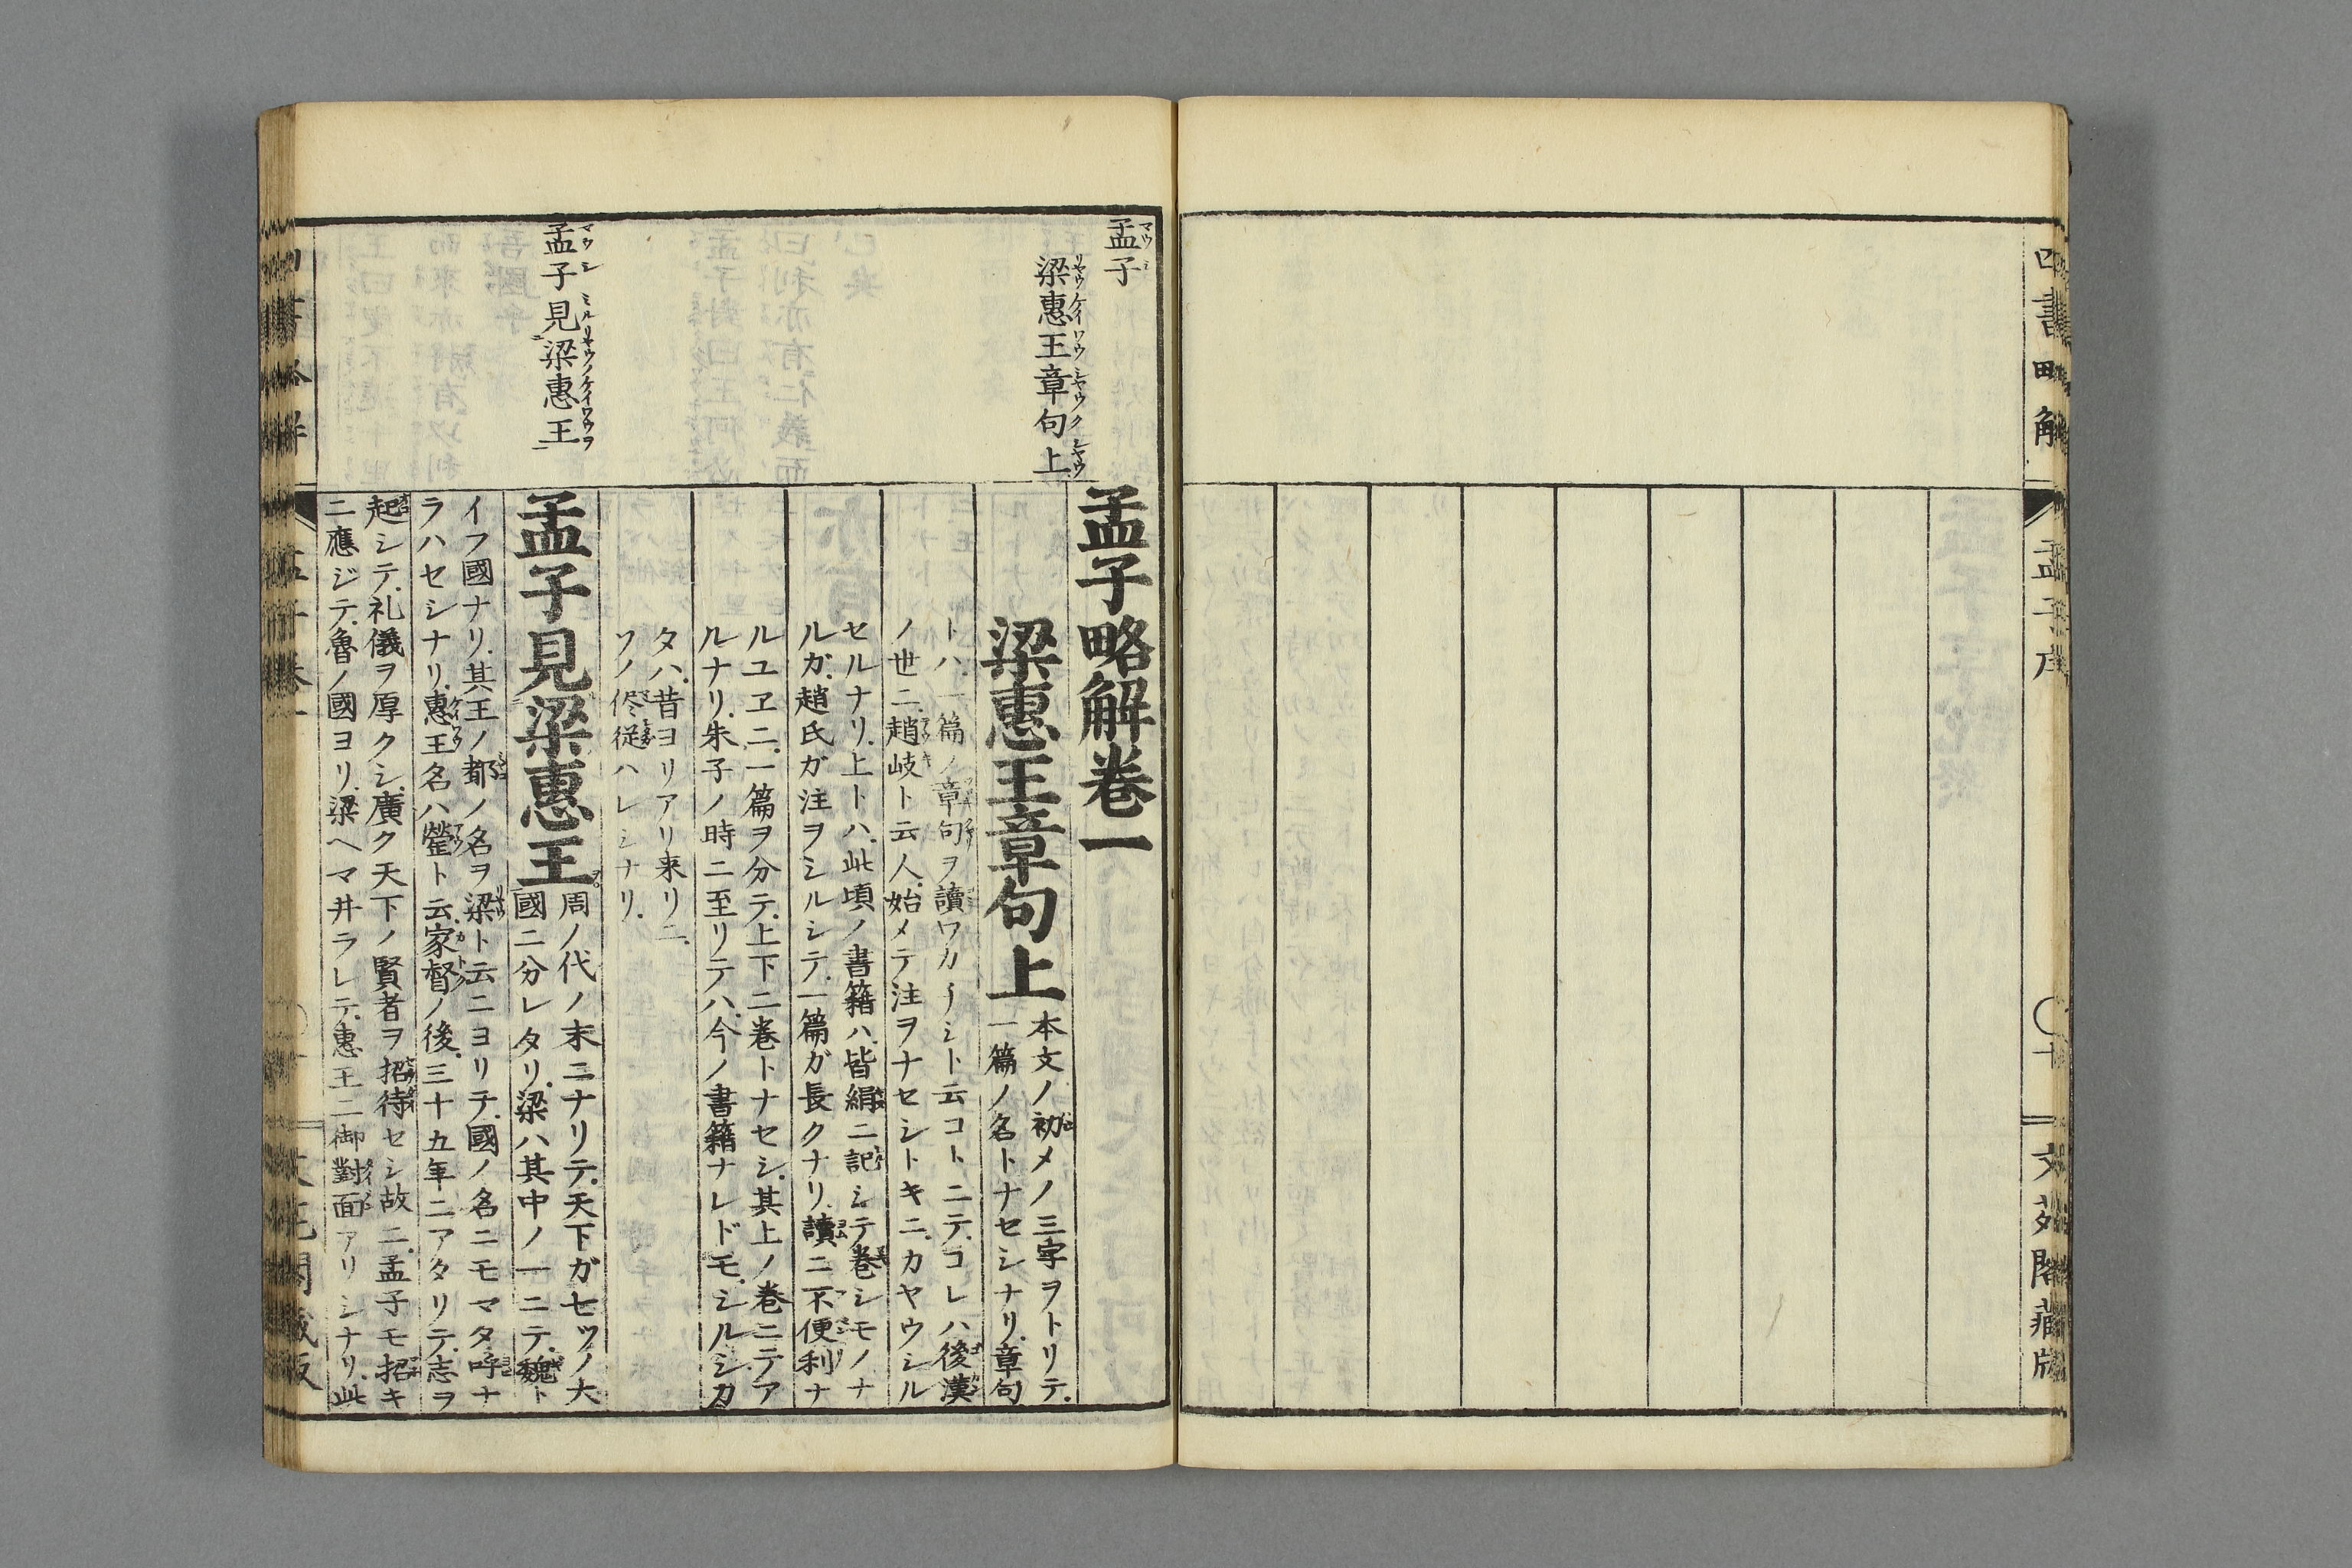 四書略解
孟子序
〇十
文苑閣藏版
孟子
マウシ
梁惠王章句上
リヤウケイワウシヤウクシヤウ
孟子見梁惠王
マウシミルリヤウノケイワウヲ
孟子略解卷一
梁惠王章句上
本文ノ初メノ三字ヲトリテ.
一篇ノ名トナセシナリ.章句
トハ.一篇ノ章句ヲ讀ワカｲシト云コトニテ.コレハ後漢
ノ世ニ.趙岐ト云人.始メテ注ヲナセシトキニ.カヤウシル
セルナリ.上トハ.此頃ノ書籍ハ.皆絹ニ記シテ卷シモノナ
ルガ.趙氏ガ注ヲシルシテ.一篇ガ長クナリ.讀ニ不便利ナ
ルユヱニ.一篇ヲ分テ.上下二卷トナセシ.其上ノ卷ニテア
ルナリ.朱子ノ時ニ至リテハ.今ノ書籍ナレドモ.シルシカ
タハ.昔ヨリアリ来リニ.
ソノ侭従ハレシナリ.
孟子見梁惠王
周ノ代ノ末ニナリテ.天下ガ七ツノ大
國ニ分レタリ.梁ハ其中ノ一ニテ.魏ト
イフ國ナリ.其王ノ都ノ名ヲ梁ト云ニヨリテ.國ノ名ニモマタ呼ナ
ラハセシナリ.惠王名ハ罃ト云.家督ノ後.三十五年ニアタリテ.志ヲ
起シテ.礼儀ヲ厚クシ.廣ク天下ノ賢者ヲ招待セシ故ニ.孟子モ招キ
ニ應ジテ.魯ノ國ヨリ.梁ヘマ井ラレテ.惠王ニ御對面アリシナリ.此
四書略解
孟子卷一
文苑閣藏版